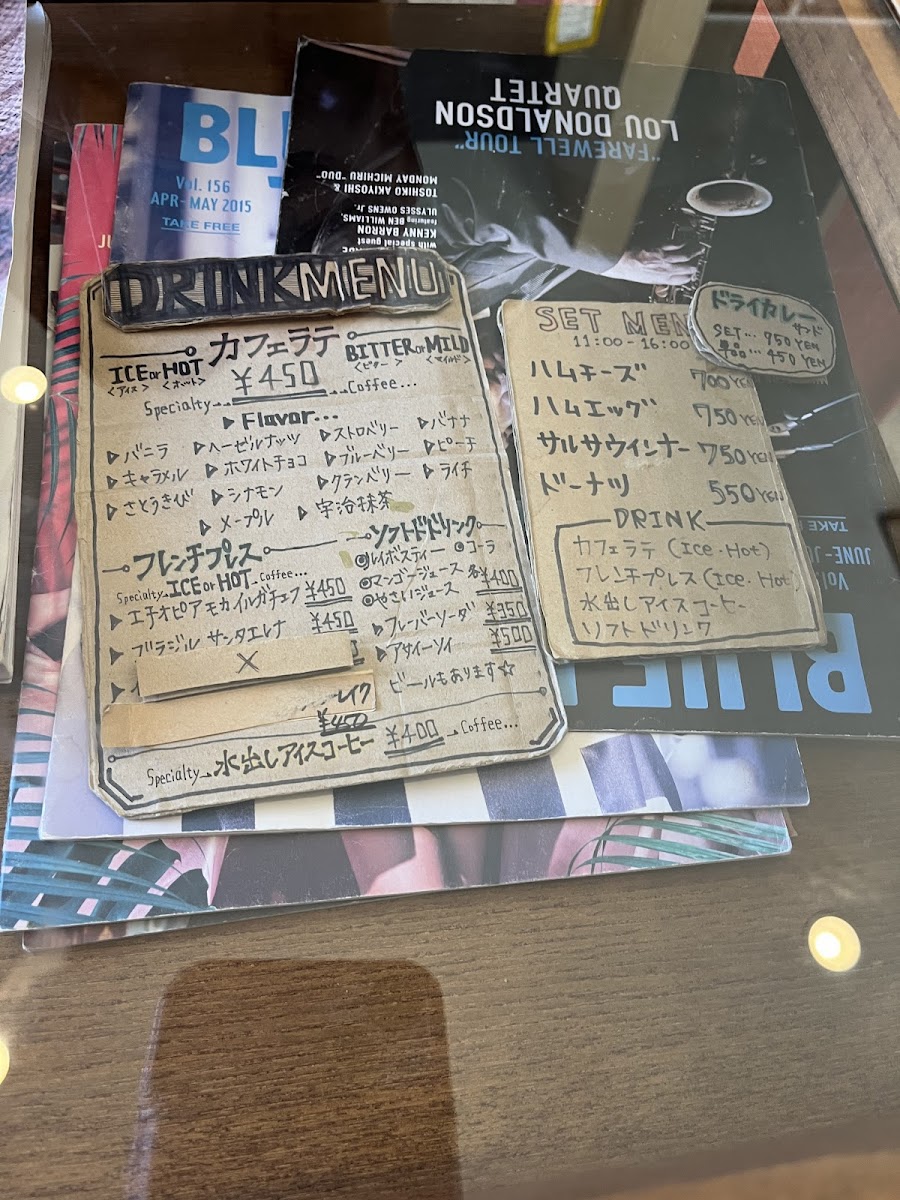 BLU
Vol. 156
APR-MAY 2015
TAKE FREE
JU
"FAREWELL TOUR"
LOU DONALDSON
QUARTET
TOSHIKO AKIYOSHI &
MONDAY MICHIRU "DUO"
KENNY BARRON
with special guest
featuring BEN WILLIAMS,
ULYSSES OWENS Jr.
DRINK MENU
ICE or HOT カフェラテ BITTER or MILD
<アイス> <ホット> ¥450 <ビター> <マイルド>
Specialty Coffee...
▷ Flavor...
▷バニラ ▷ヘーゼルナッツ ▷ストロベリー ▷バナナ
▷キャラメル ▷ホワイトチョコ ▷ブルーベリー ▷ピーチ
▷さとうきび ▷シナモン ▷クランベリー ▷ライチ
▷メープル ▷宇治抹茶
フレンチプレス
Specialty ICE or HOT Coffee...
▷エチオピア モカイルガチェフ ¥450
▷ブラジル サンタエレナ ¥450
×
レイク
¥450
ソフトドリンク
◎ルイボスティー ◎コーラ
◎マンゴージュース 各¥400
◎やさいジュース
▷フレーバーソーダ ¥350
▷アサイーソイ ¥500
ビールもあります☆
Specialty 水出しアイスコーヒー ¥400 Coffee...
SET MEN
11:00-16:00
ハムチーズ 700YEN
ハムエッグ 750YEN
サルサウィンナー 750YEN
ドーナツ 550YEN
DRINK
カフェラテ (Ice・Hot)
フレンチプレス (Ice・Hot
水出しアイスコーヒー
ソフトドリンク
ドライカレー
サンド
SET... 950YEN
単品... 450YEN
TAKE
JUNE-JU
Vol
BLUE